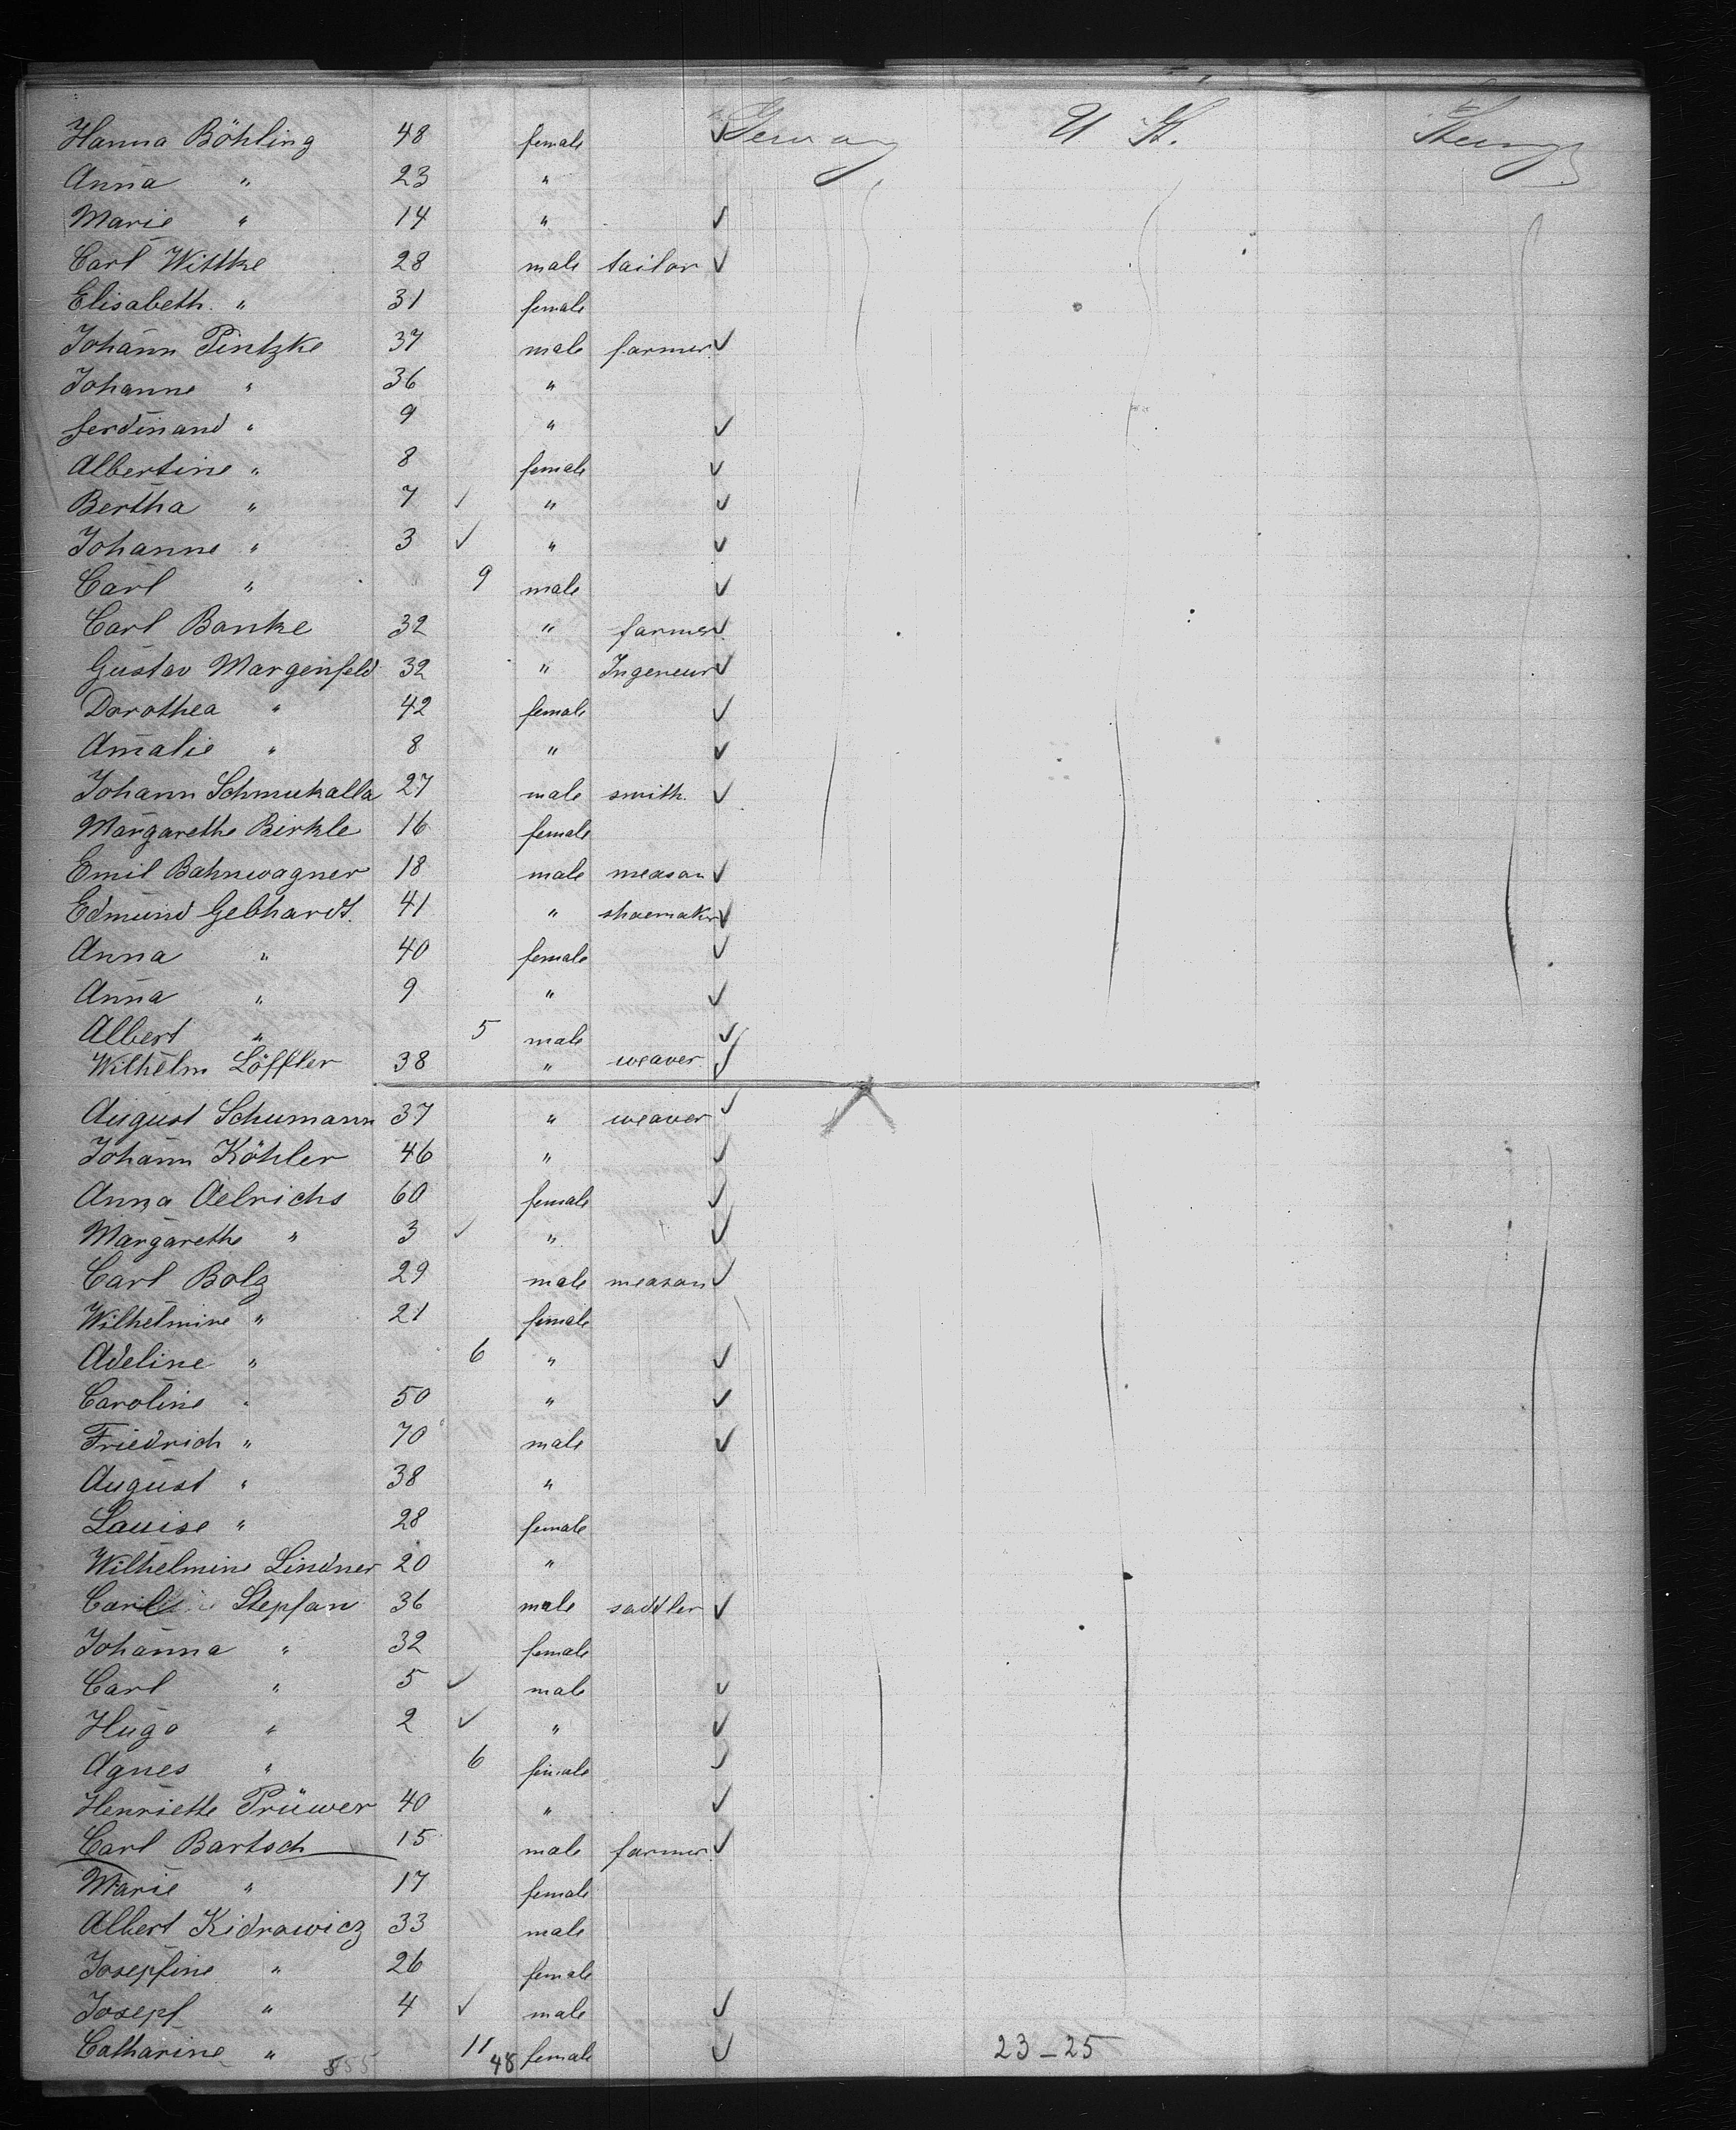 Germany U. St. Steerage
Hanna Böhling 48 female ✓
Anna " 23 "
Marie " 14 " ✓
Carl Wittke 28 male tailor ✓
Elisabeth " 31 female
Johann Pintzke 37 male farmer ✓
Johanne " 36 "
ferdinand " 9 " ✓
Albertine " 8 female ✓
Bertha " 7 ✓ " ✓
Johanne " 3 ✓ " ✓
Carl " 9 male ✓
Carl Banke 32 " farmer ✓
Gustav Margenfeld 32 " Ingeneur ✓
Dorothea " 42 female ✓
Amalie " 8 " ✓
Johann Schmukalla 27 male smith. ✓
Margarethe Birkle 16 female
Emil Bahnwagner 18 male meason ✓
Edmund Gebhardt. 41 " shoemaker ✓
Anna " 40 female ✓
Anna " 9 " ✓
Albert " 5 male ✓
Wilhelm Löffler 38 " weaver ✓
August Schumann 37 " weaver ✓
Johann Köhler 46 " ✓
Anna Oelrichs 60 female ✓
Margarethe " 3 ✓ " ✓
Carl Bolz 29 male meason ✓
Wilhelmine " 21 female
Adeline " 6 " ✓
Caroline " 50 " ✓
Friedrich " 70 male ✓
August " 38 "
Lauise " 28 female
Wilhelmine Lindner 20 "
Carl Stepfan 36 male saddler ✓
Johanna " 32 female
Carl " 5 ✓ male ✓
Hugo " 2 ✓ " ✓
Agnes " 6 female ✓
Henriette Prüwer 40 " ✓
Carl Bartsch 15 male farmer ✓
Marie " 17 female
Albert Kidrawicz 33 male
Josepfine " 26 female
Josepf " 4 ✓ male ✓
Catharine " 11 female ✓
48 23-25